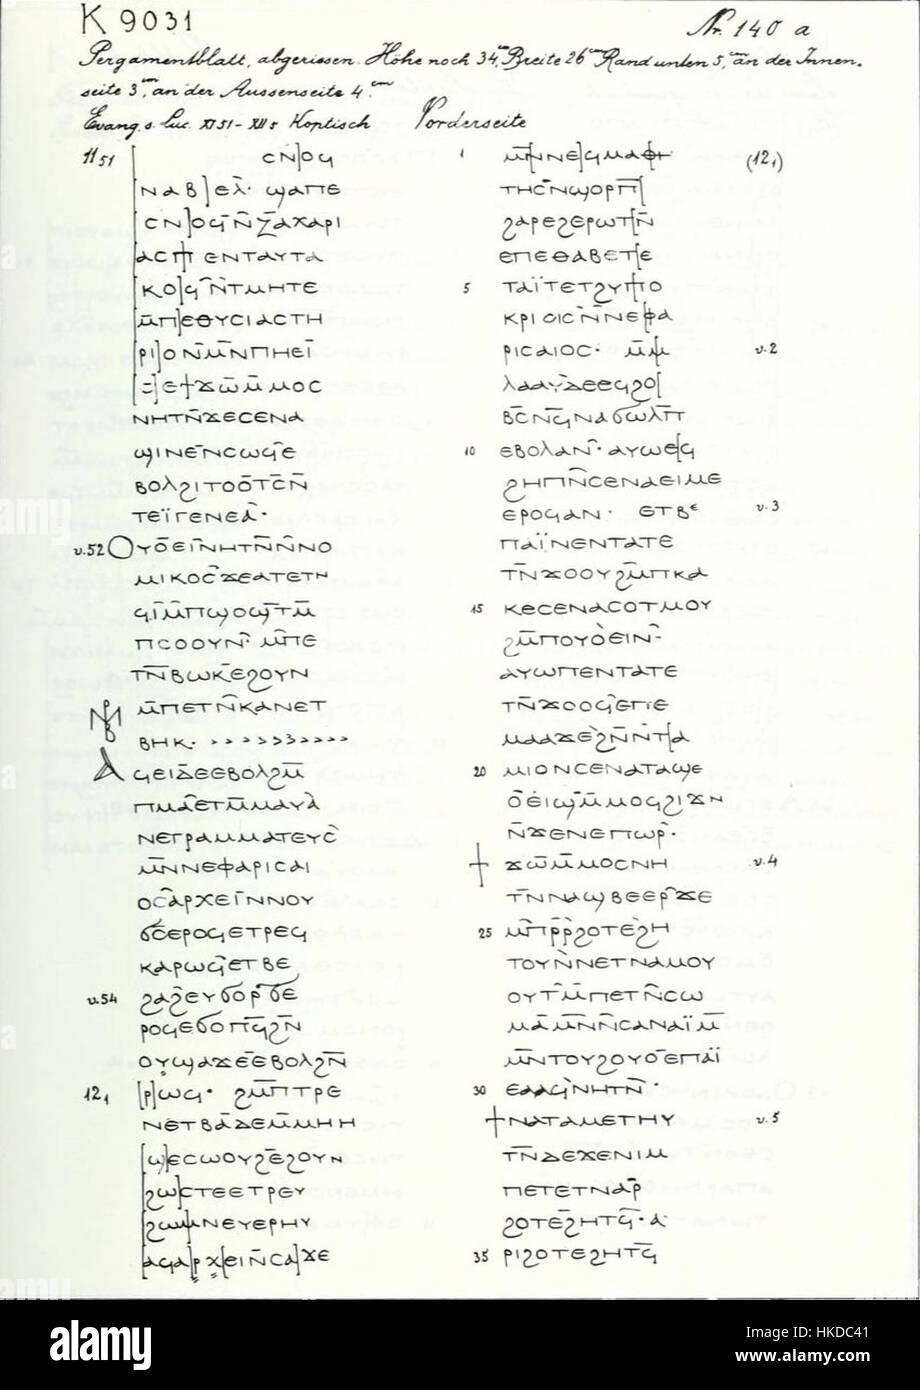 K 9031
Nr. 140 a
Pergamentblatt, abgerissen. Höhe noch 34 cm, Breite 26 cm Rand unten 5 cm, an der Innen-
seite 3 cm, an der Aussenseite 4 cm.
Evang. s. Luc. XI 51 - XII 5 Koptisch Vorderseite
11 51 ⲥⲛ]ⲟϥ
[ⲛⲁⲃ]ⲉⲗ· ϣⲁⲡⲉ
[ⲥⲛ]ⲟϥⲛ̄ⲍⲁⲭⲁⲣⲓ
ⲁⲥⲡ]ⲉⲛⲧⲁⲩⲧⲁ
[ⲕⲟ]ϥⲛ̄ⲧⲙⲏⲧⲉ
ⲙ̄ⲡ]ⲉⲑⲩⲥⲓⲁⲥⲧⲏ
[ⲣⲓ]ⲟⲛⲙ̄ⲛ̄ⲡⲏⲉⲓ̈
ⲉϯϫⲱ̄ⲙ̄ⲙⲟⲥ
ⲛⲏⲧⲛ̄ϫⲉⲥⲉⲛⲁ
ϣⲓⲛⲉⲛ̄ⲥⲱϥⲉ
ⲃⲟⲗϩⲓⲧⲟⲟⲧⲥ̄ⲛ̄
ⲧⲉⲓ̈ⲅⲉⲛⲉⲁ·
v.52 Ⲟⲩⲟⲉⲓⲛⲏⲧⲛ̄ⲛ̄ⲛⲟ
ⲙⲓⲕⲟⲥϫⲉⲁⲧⲉⲧⲛ
ϥⲓⲙ̄ⲡϣⲟϣⲧⲙ̄
ⲡⲥⲟⲟⲩⲛ· ⲙ̄ⲡⲉ
ⲧⲛ̄ⲃⲱⲕⲉϩⲟⲩⲛ
ⲙ̄ⲡⲉⲧⲛ̄ⲕⲁⲛⲉⲧ
ⲃⲏⲕ· >>>>>>>>>>
Ⲁϥⲉⲓⲇⲉⲉⲃⲟⲗϩⲙ̄
ⲡⲙⲁⲉⲧⲙ̄ⲙⲁⲩⲁ
ⲛⲉⲅⲣⲁⲙⲙⲁⲧⲉⲩⲥ
ⲙ̄ⲛⲛⲉⲫⲁⲣⲓⲥⲁⲓ
ⲟⲥⲁⲣⲭⲉⲓⲛ̄ⲛⲟⲩ
ϭⲥⲉⲣⲟϥⲉⲧⲣⲉϥ
ⲕⲁⲣⲱϥⲉⲧⲃⲉ
v.54 ϩⲁϩⲉⲩϭⲟⲣϭⲉ
ⲣⲟϥⲉϭⲟⲡϥϩⲛ̄
ⲟⲩϣⲁϫⲉⲉⲃⲟⲗϩⲛ̄
12 1 [ⲣ]ⲱϥ· ϩⲙ̄ⲡⲧⲣⲉ
ⲛⲉⲧⲃⲁⲇⲉⲙ̄ⲙⲏⲏ
[ϣ]ⲉⲥⲱⲟⲩϩⲉϩⲟⲩⲛ
[ϩⲱ]ⲥⲧⲉⲉⲧⲣⲉⲩ
[ϩⲱⲙ]ⲛⲉⲩⲉⲣⲏⲩ
[ⲁϥⲁ]ⲣⲭ[ⲉⲓⲛ̄ⲥⲁ]ϫⲉ
1 ⲙ̄ⲛ̄ⲛⲉ[ϥⲙⲁⲑⲏ· (12 1)
ⲧⲏⲥⲛ̄ϣⲟⲣⲡ[
ϩⲁⲣⲉϩⲉⲣⲱⲧ[ⲛ̄
ⲉⲡⲉⲑⲁⲃⲉⲧ[ⲉ
5 ⲧⲁⲓ̈ⲧⲉⲧϩⲩⲡⲟ
ⲕⲣⲓⲥⲓⲥⲛ̄ⲛⲉⲫ[ⲁ
ⲣⲓⲥⲁⲓⲟⲥ· ⲙ̄ⲙ̄[ v.2
ⲗⲁⲁⲩⲇⲉⲉϥϩⲟ[
ⲃ̄ⲥⲛ̄ϥⲛⲁϭⲱⲗⲡ̄
10 ⲉⲃⲟⲗⲁⲛ· ⲁⲩⲱⲉ[ϥ
ϩⲏⲡⲛ̄ⲥⲉⲛⲁⲉⲓⲙⲉ
ⲉⲣⲟϥⲁⲛ· ⲉⲧⲃⲉ v.3
ⲡⲁⲓ̈ⲛⲉⲛⲧⲁⲧⲉ
ⲧⲛ̄ϫⲟⲟⲩϩⲙ̄ⲡⲕⲁ
15 ⲕⲉⲥⲉⲛⲁⲥⲟⲧⲙⲟⲩ
ϩⲙ̄ⲡⲟⲩⲟⲉⲓⲛ·
ⲁⲩⲱⲡⲉⲛⲧⲁⲧⲉ
ⲧⲛ̄ϫⲟⲟϥⲉⲡⲉ
ⲙⲁⲁϫⲉϩⲛ̄ⲛⲧ[ⲁ
20 ⲙⲓⲟⲛⲥⲉⲛⲁⲧⲁϣⲉ
ⲟⲉⲓϣⲙ̄ⲙⲟϥϩⲓϫⲛ
ⲛ̄ϫⲉⲛⲉⲡⲱⲣ·
ϯϫⲱ̄ⲙ̄ⲙⲟⲥⲛⲏ v.4
ⲧⲛ̄ⲛⲁϣⲃⲉⲉⲣϫⲉ
25 ⲙ̄ⲡⲣ̄ⲣϩⲟⲧⲉϩⲏ
ⲧⲟⲩⲛ̄ⲛⲉⲧⲛⲁⲙⲟⲩ
ⲟⲩⲧⲙ̄ⲡⲉⲧⲛ̄ⲥⲱ
ⲙⲁⲙ̄ⲛ̄ⲛ̄ⲥⲁⲛⲁⲓ̈ⲙ̄
ⲙ̄ⲛⲧⲟⲩϩⲟⲩⲟⲉⲡⲁⲓ̈
30 ⲉⲁⲁϥⲛⲏⲧⲛ̄·
ϯⲛⲁⲧⲁⲙⲉⲧⲏⲩ v.5
ⲧⲛ̄ⲇⲉϫⲉⲛⲓⲙ
ⲡⲉⲧⲉⲧⲛⲁⲣ̄
ϩⲟⲧⲉϩⲏⲧϥ̄· ⲁ
35 ⲣⲓϩⲟⲧⲉϩⲏⲧϥ̄
alamy
Image ID: HKDC41
www.alamy.com